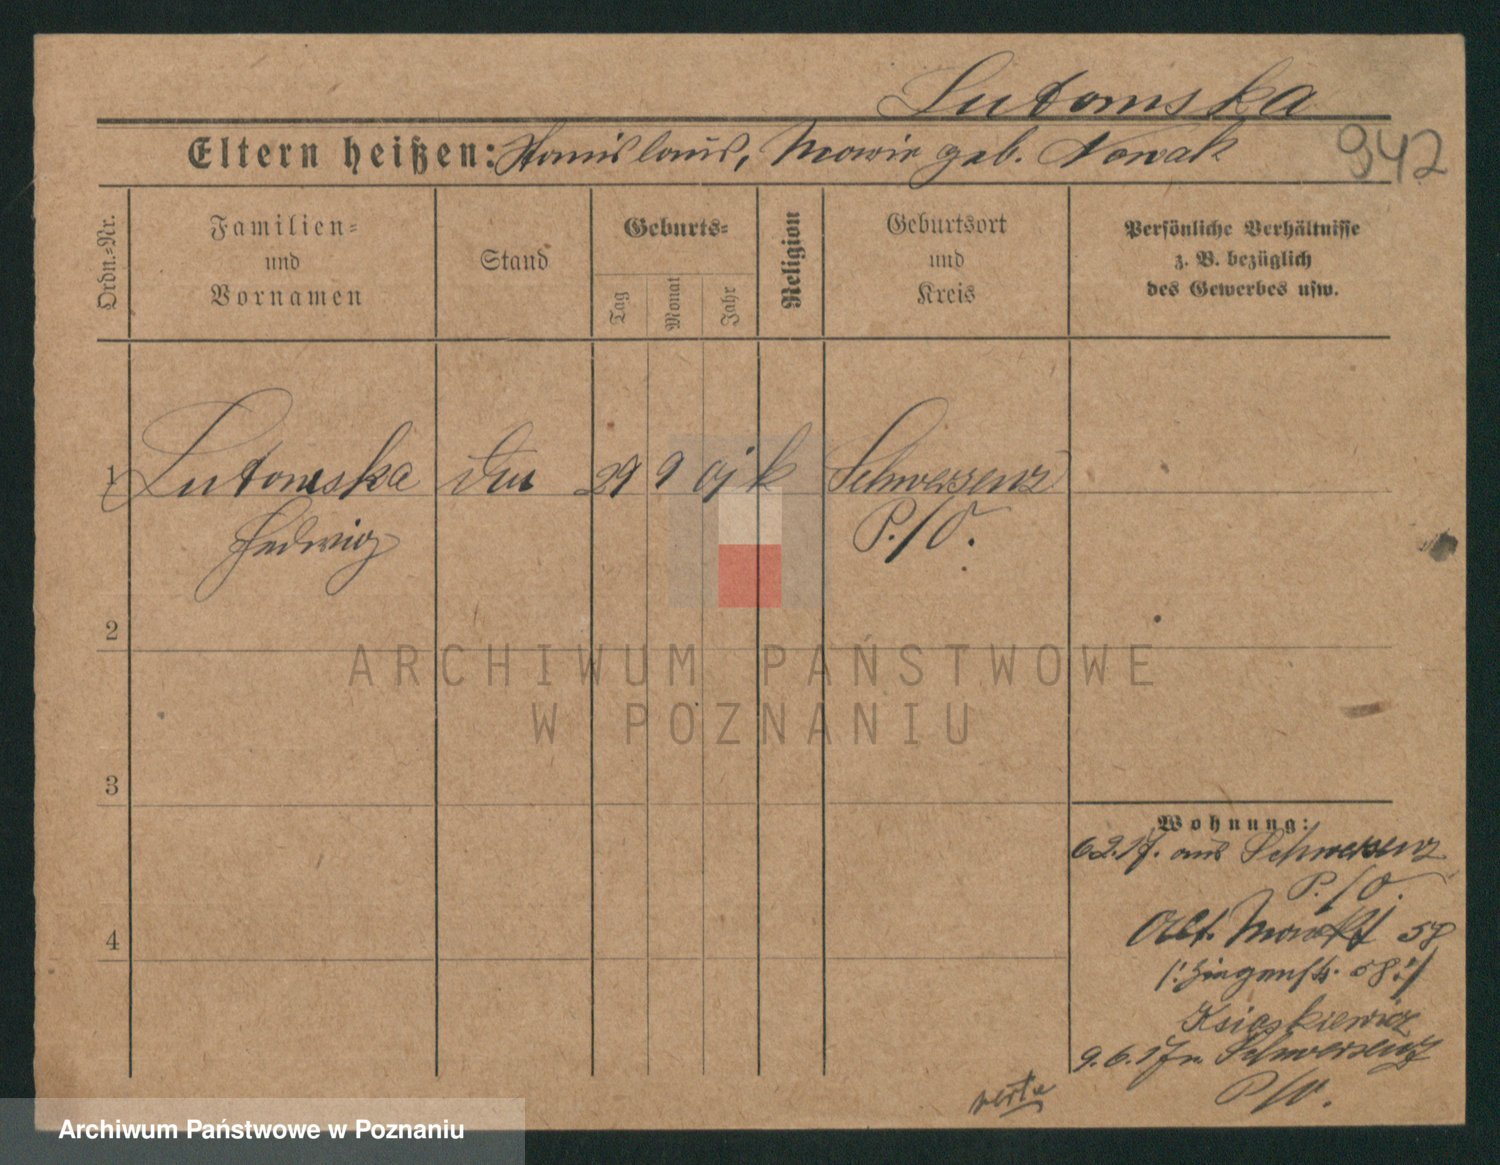 Lutomska
Eltern heißen: Stanislaus, Marie geb. Nowak
942
Ordn.-Nr.
Familien-
und
Vornamen
Stand
Geburts-
Tag
Monat
Jahr
Religion
Geburtsort
und
Kreis
Persönliche Verhältnisse
z. B. bezüglich
des Gewerbes usw.
1 Lutomska 29 9 k Schwersenz
Hedwig P./O.
2
ARCHIWUM PAŃSTWOWE
W POZNANIU
3
Wohnung:
6.2.17. aus Schwersenz
P./O.
4
Alt. Markt 58
Ksioskiewicz
9.6.17 n. Schwersenz
P/O.
verte
Archiwum Państwowe w Poznaniu